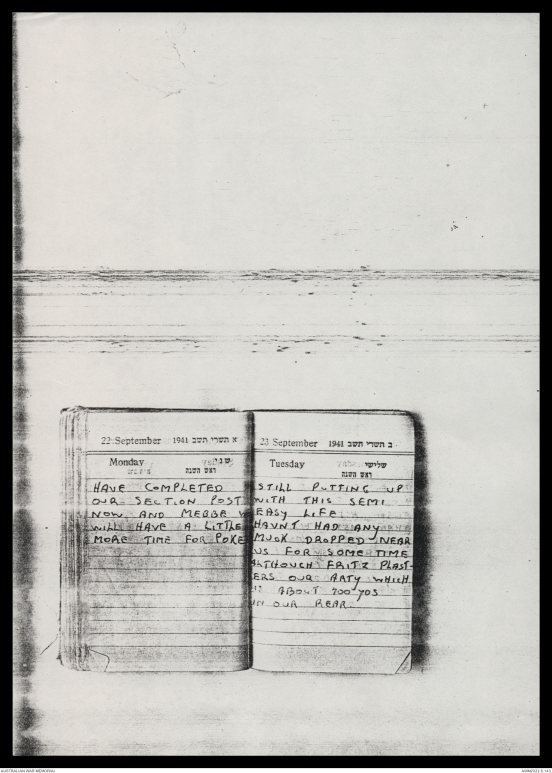 22 September 1941 א תשרי תשב
Monday שני
ראש השנה
HAVE COMPLETED
OUR SECTION POST
NOW AND MEBBE W
WILL HAVE A LITTLE
MORE TIME FOR POKE
23 September 1941 ב תשרי תשב
Tuesday שלישי
ראש השנה
STILL PUTTING UP
WITH THIS SEMI
EASY LIFE
HAVNT HAD ANY
MUCK DROPPED NEAR
US FOR SOME TIME
ALTHOUGH FRITZ PLAST-
ERS OUR ARTY WHICH
IS ABOUT 700 YDS
IN OUR REAR.
AUSTRALIAN WAR MEMORIAL